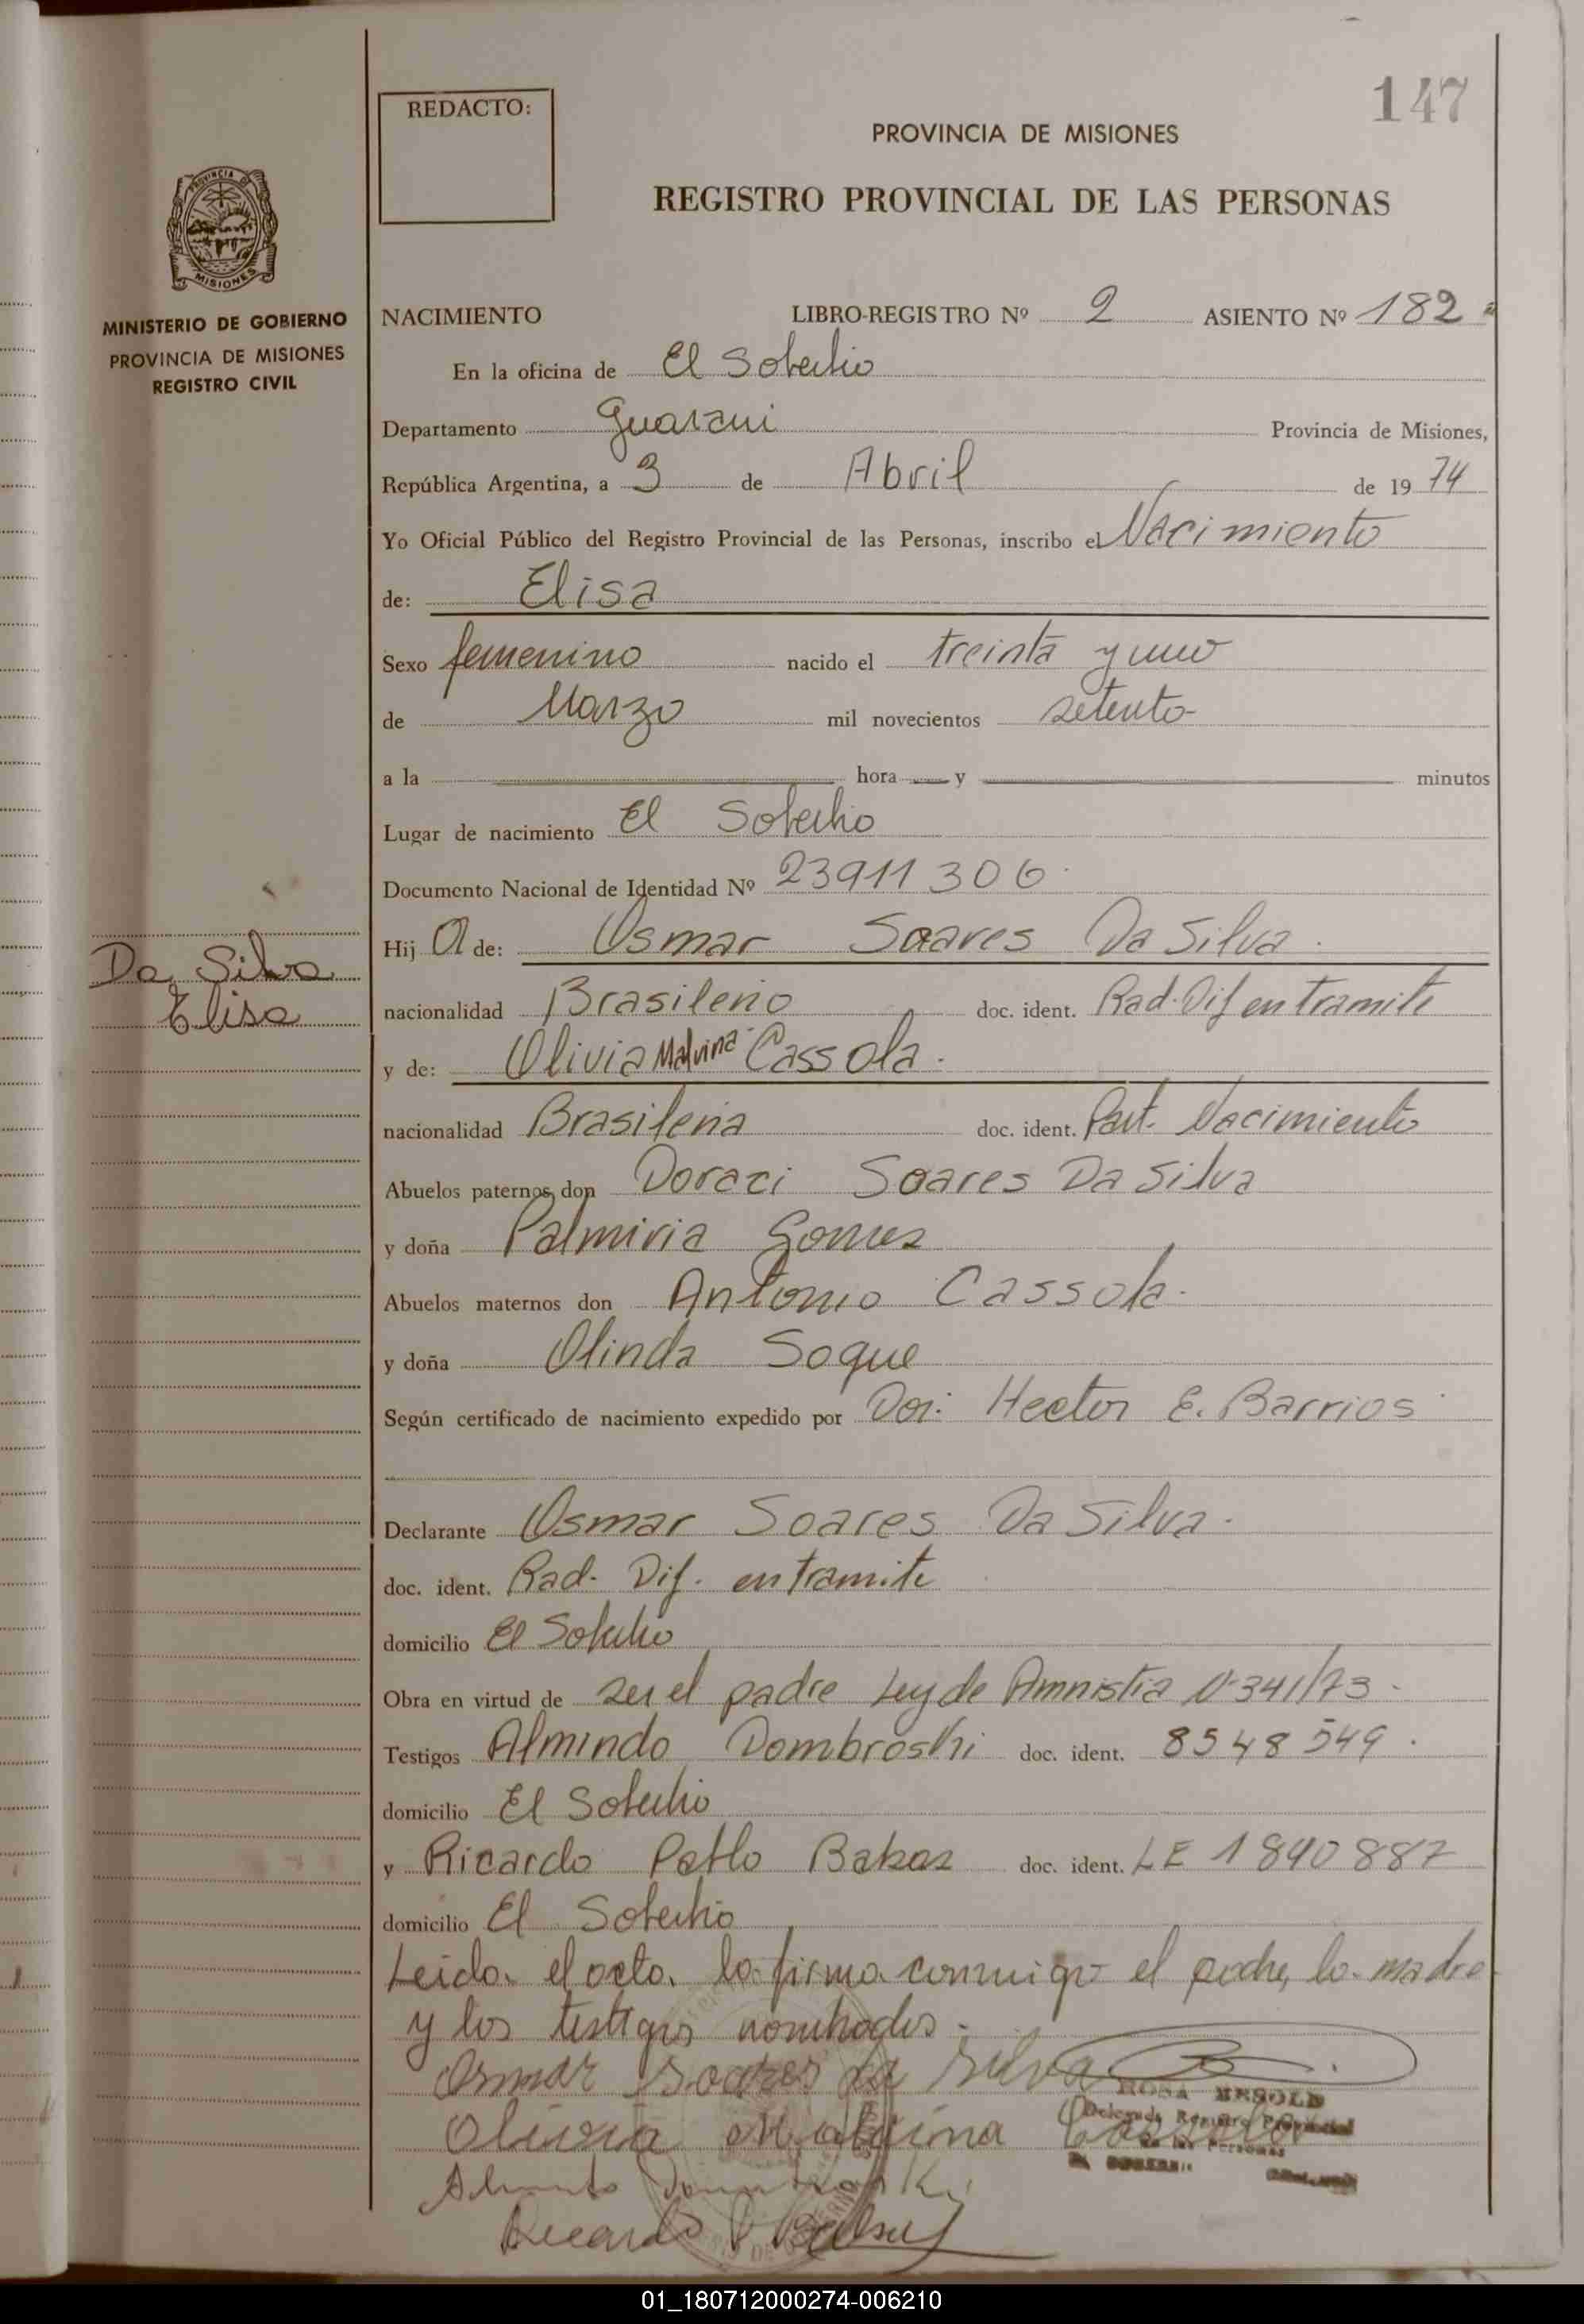 147
REDACTO:
PROVINCIA DE MISIONES
REGISTRO PROVINCIAL DE LAS PERSONAS
PROVINCIA DE
MISIONES
MINISTERIO DE GOBIERNO
PROVINCIA DE MISIONES
REGISTRO CIVIL
NACIMIENTO LIBRO-REGISTRO Nº 2 ASIENTO Nº 182
En la oficina de El Soberbio
Departamento Guarani Provincia de Misiones,
República Argentina, a 3 de Abril de 1974
Yo Oficial Público del Registro Provincial de las Personas, inscribo el Nacimiento
de: Elisa
Sexo femenino nacido el treinta y uno
de Marzo mil novecientos setenta
a la hora y minutos
Lugar de nacimiento El Soberbio
Documento Nacional de Identidad Nº 23911306
Da Silva
Elisa
Hija de: Osmar Soares Da Silva
nacionalidad Brasileño doc. ident. Rad. Dif en tramite
y de: Olivia Malvina Cassola.
nacionalidad Brasileña doc. ident. Part. Nacimiento
Abuelos paternos don Doraci Soares Da Silva
y doña Palmiria Gomes
Abuelos maternos don Antonio Cassola.
y doña Olinda Soque
Según certificado de nacimiento expedido por Hector E. Barrios
Declarante Osmar Soares Da Silva.
doc. ident. Rad. Dif. en tramite
domicilio El Soberbio
Obra en virtud de ser el padre Ley de Amnistia Nº 341/73.
Testigos Almindo Dombroski doc. ident. 8548549.
domicilio El Soberbio
y Ricardo Pablo doc. ident. LE 1840887
domicilio El Soberbio
Leida el acta, la firma conmigo el padre, la madre
y los testigos nombrados.
Osmar Soares da Silva
ROSA
Delegada Registro Provincial
de las Personas
Olivia Malvina Cassola
Ricardo P
01_180712000274-006210